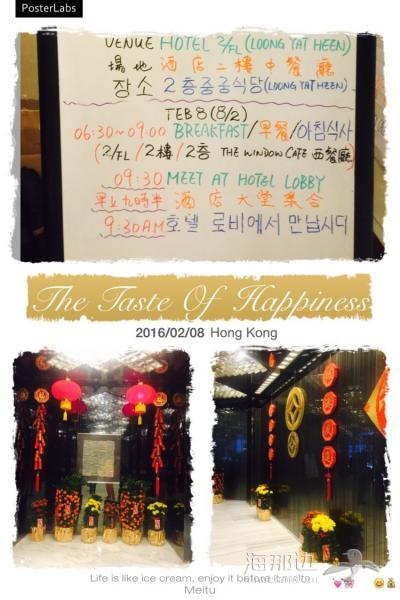 PosterLabs
VENUE HOTEL 2/FL (LOONG YAT HEEN)
場地 酒店二樓中餐廳
장소 2층중국식당(LOONG YAT HEEN)
FEB 8 (8/2)
06:30~09:00 BREAKFAST/早餐/아침식사
(2/FL / 2樓 / 2層 THE WINDOW CAFE 西餐廳)
09:30 MEET AT HOTEL LOBBY
早上九時半 酒店大堂集合
9:30AM 호텔 로비에서 만납시다
The Taste Of Happiness
2016/02/08 Hong Kong
海那边
Life is like ice cream, enjoy it before it melts.
Meitu